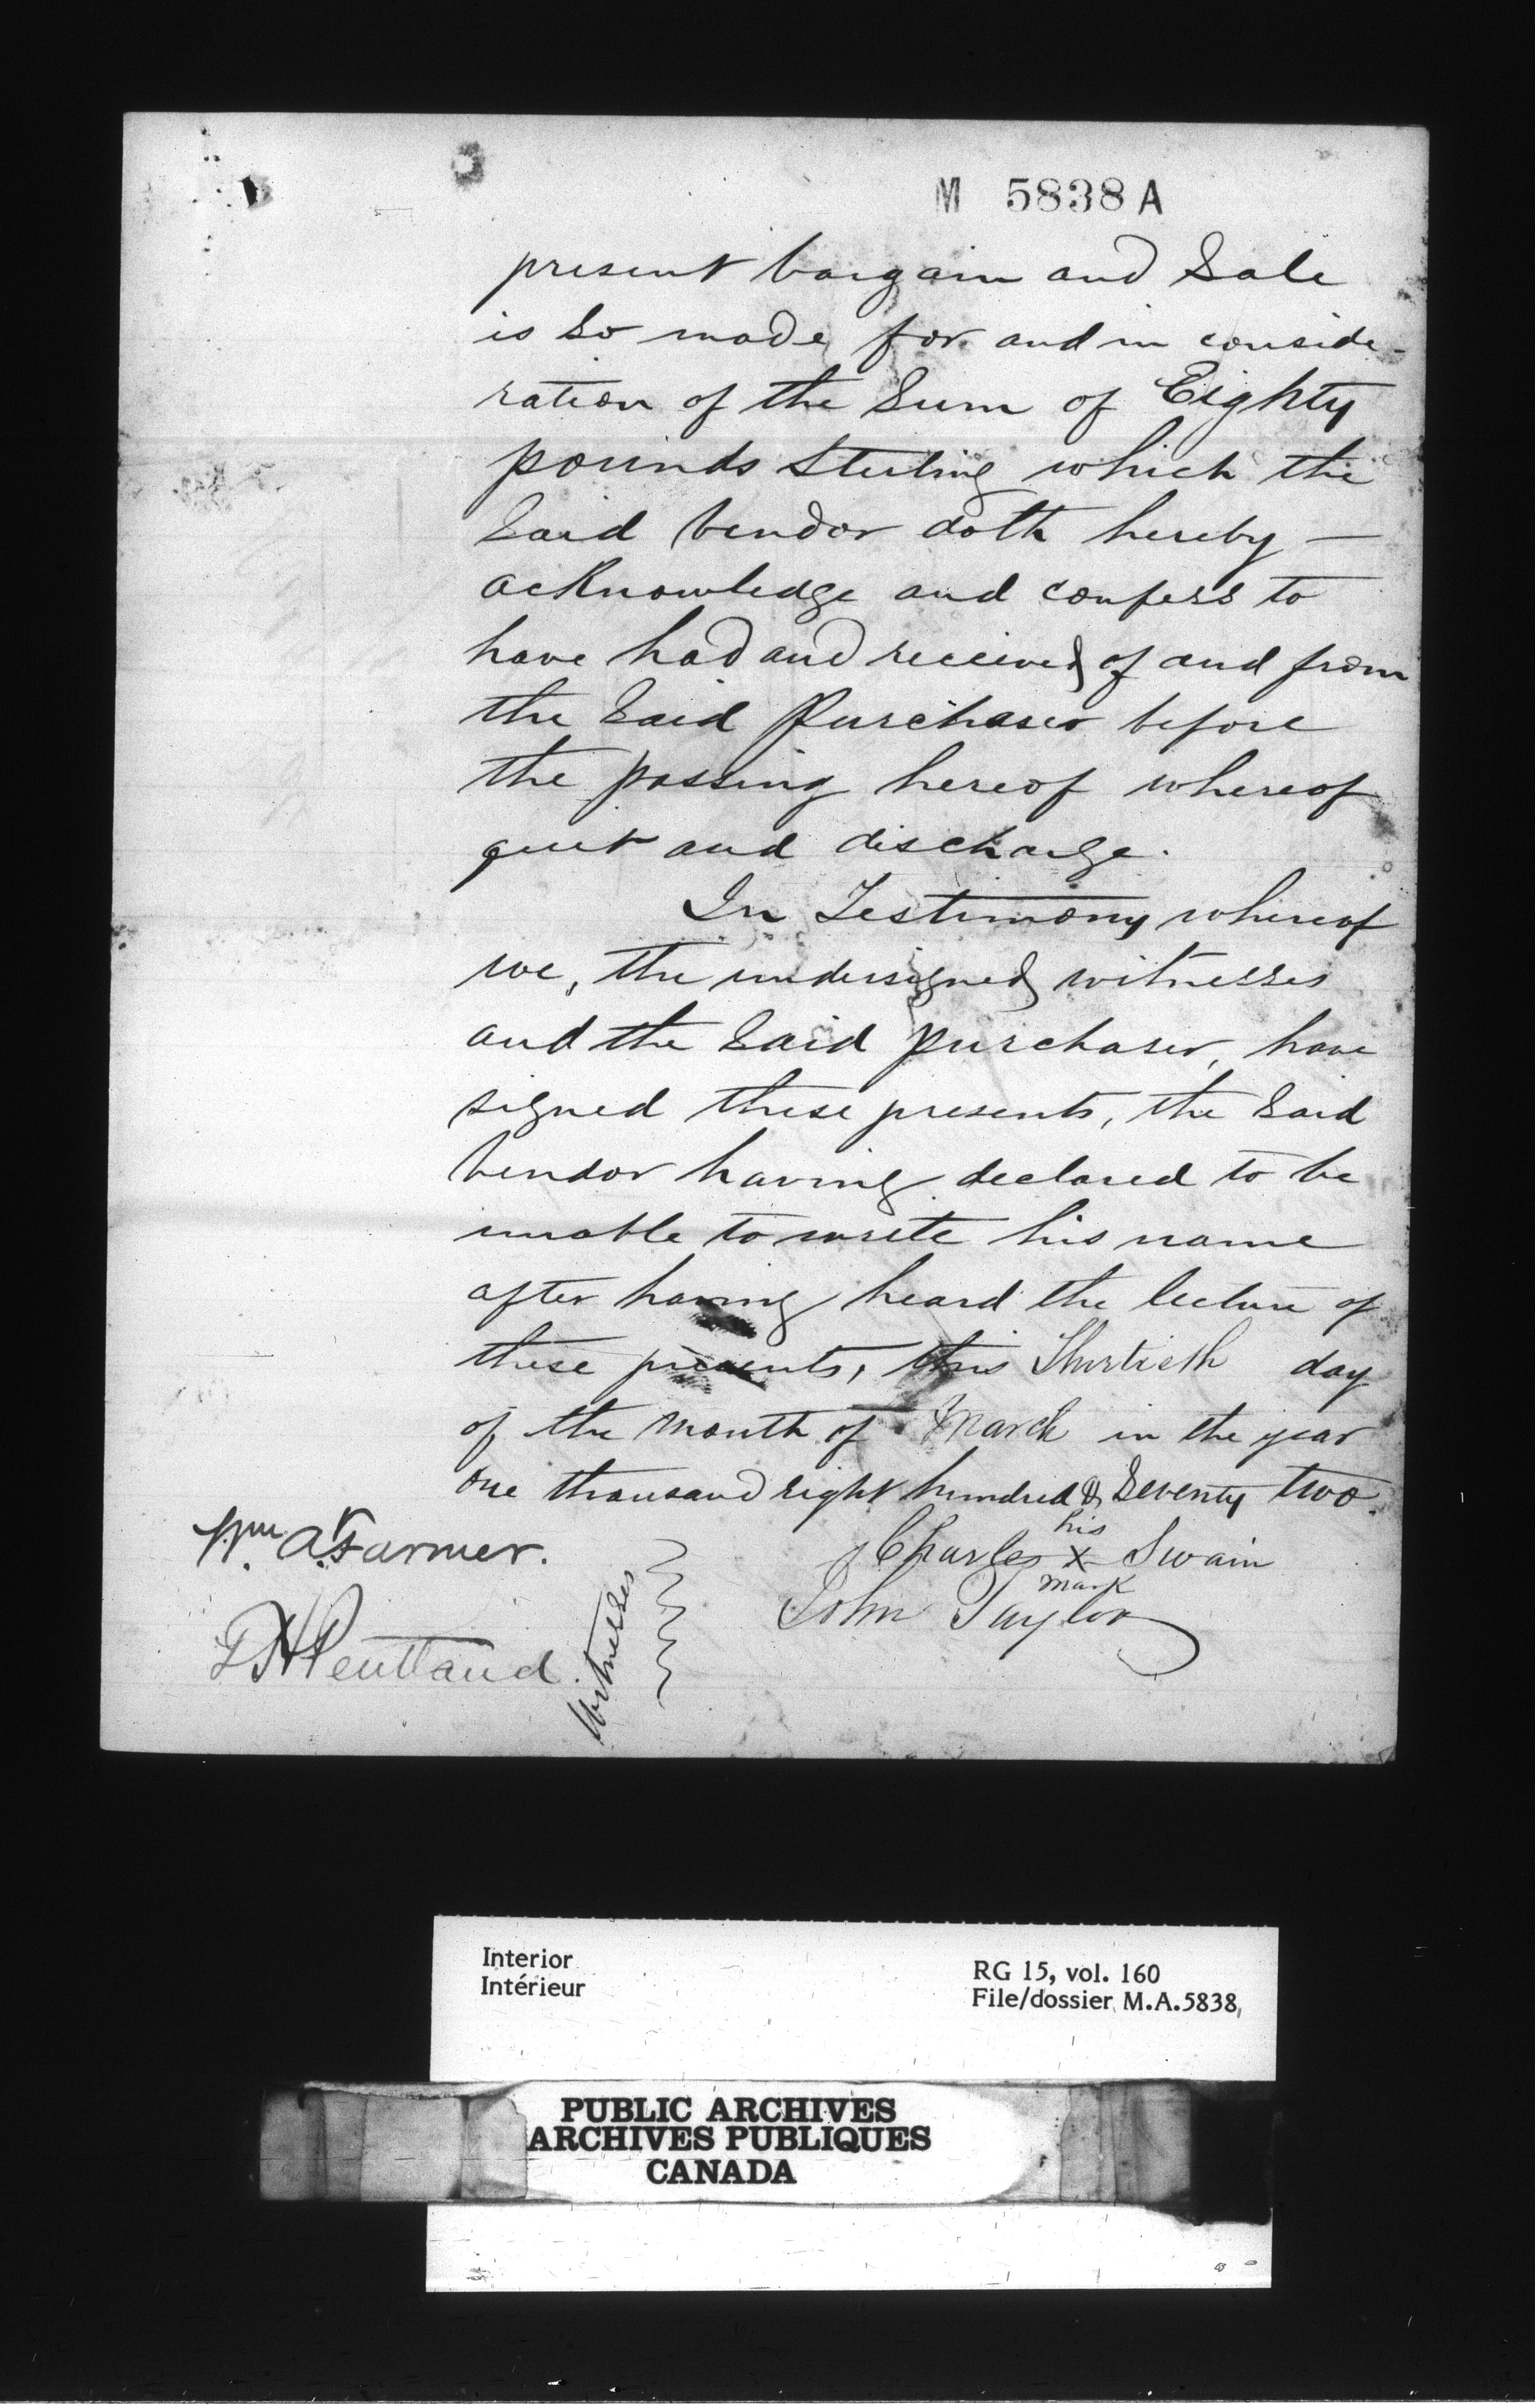 M 5838 A
present bargain and Sale
is so made for and in conside-
ration of the Sum of Eighty
pounds Sterling which the
Said Vendor doth hereby —
acknowledge and confess to
have had and received of and from
the Said Purchaser before
the passing hereof whereof
quit and discharge.
In Testimony whereof
we, the undersigned witnesses
and the Said purchaser, have
signed these presents, the Said
Vendor having declared to be
unable to write his name
after having heard the lecture of
these presents, this Thirtieth day
of the month of March in the year
one thousand eight hundred & Seventy two.
his
Charles X Swain
mark
John Taylor
Wm. A. Farmer.
Pentland.
Witnesses
Interior
Intérieur
RG 15, vol. 160
File/dossier M.A.5838
PUBLIC ARCHIVES
ARCHIVES PUBLIQUES
CANADA